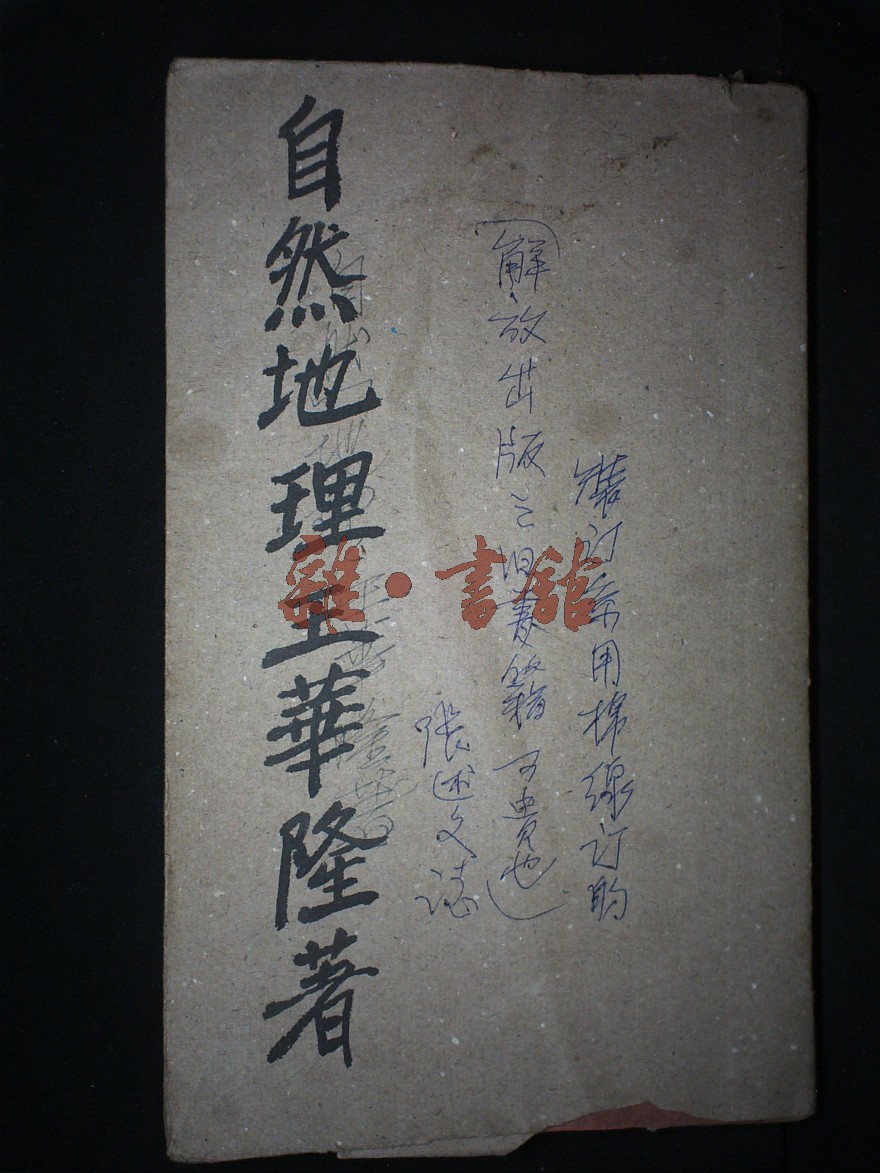 装订系用棉线订的
(解放出版之旧书籍可贵也)
张述文誌
自然地理王華隆著
雜·書館